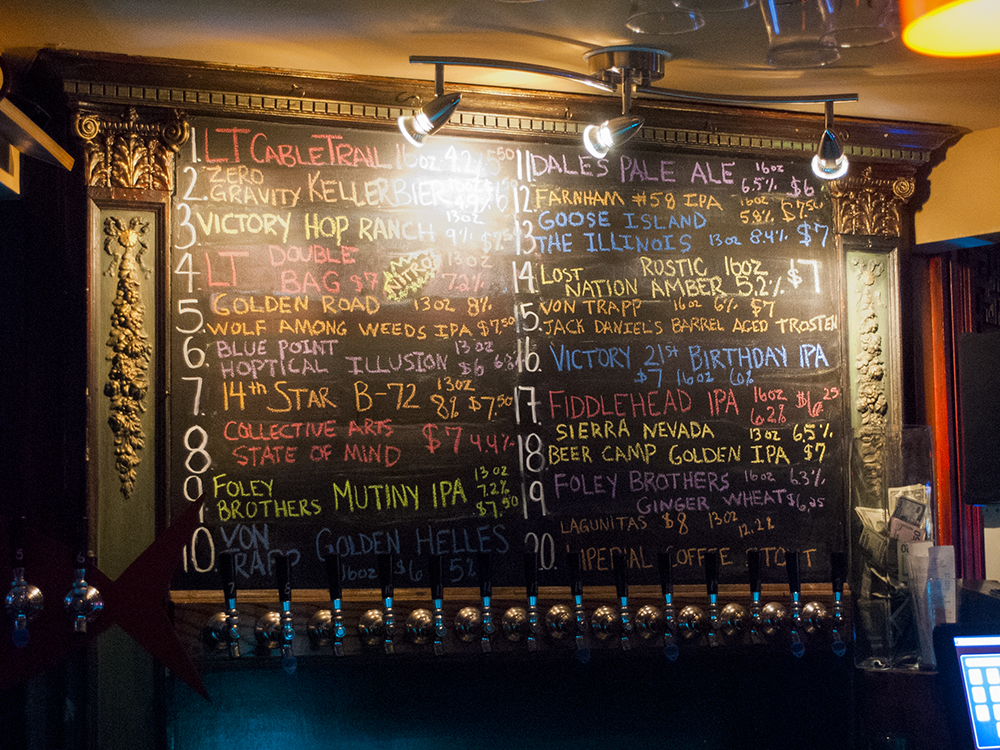 1. LT CABLE TRAIL 16oz 4.2% 5.50
2. ZERO
GRAVITY KELLERBIER
3. VICTORY HOP RANCH 13oz 9% $7.50
4. LT DOUBLE
BAG $7 NITRO 7.2%
5. GOLDEN ROAD 13oz 8%
WOLF AMONG WEEDS IPA $7.50
6. BLUE POINT 13oz
HOPTICAL ILLUSION $6
7. 14th STAR B-72 13oz
8% $7.50
8. COLLECTIVE ARTS
STATE OF MIND $7 4.4%
9 FOLEY
BROTHERS MUTINY IPA 13oz
7.2%
$7.50
10. VON
TRAPP GOLDEN HELLES
16oz $6 5%
11. DALES PALE ALE 16oz
6.5% $6
12. FARNHAM #58 IPA 16oz
5.8%
13. GOOSE ISLAND
THE ILLINOIS 13oz 8.4% $7
14. LOST RUSTIC 16oz
NATION AMBER 5.2% $7
15. VON TRAPP 16oz 6% $7
JACK DANIEL'S BARREL AGED TROSTEN
16. VICTORY 21st BIRTHDAY IPA
$7 16oz 6%
17. FIDDLEHEAD IPA 16oz
6.2% $6.25
18. SIERRA NEVADA 13oz 6.5%
BEER CAMP GOLDEN IPA $7
19. FOLEY BROTHERS 16oz 6.3%
GINGER WHEAT
20. LAGUNITAS $8 13oz
12.2%
IMPERIAL COFFEE STOUT